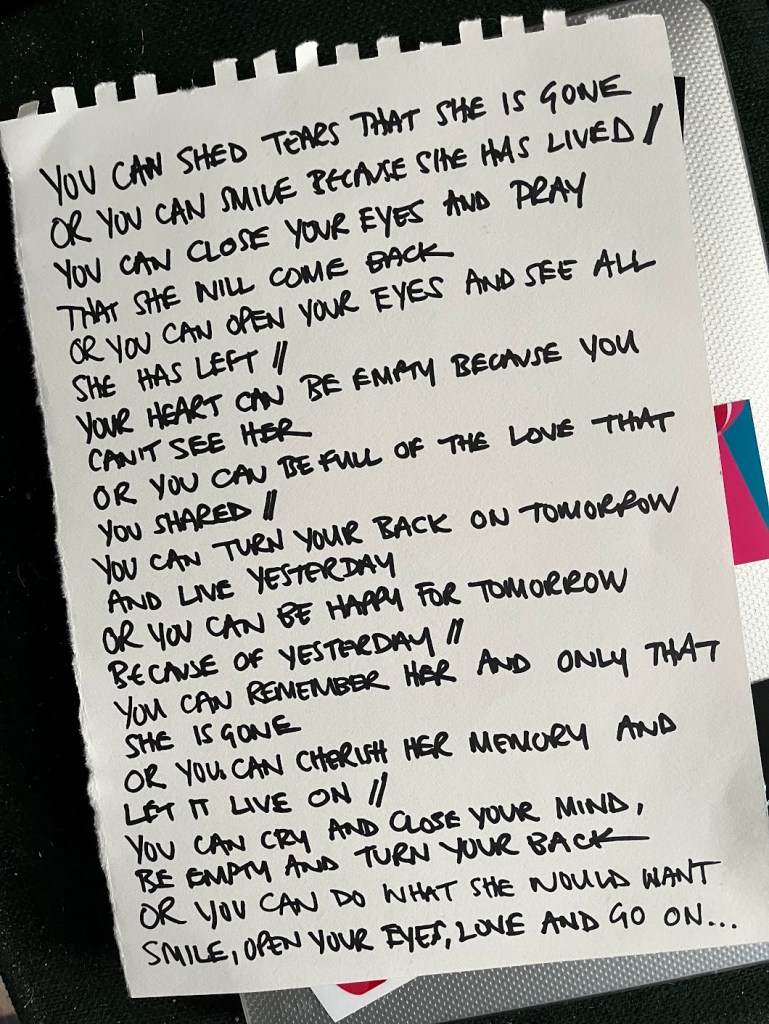 YOU CAN SHED TEARS THAT SHE IS GONE
OR YOU CAN SMILE BECAUSE SHE HAS LIVED //
YOU CAN CLOSE YOUR EYES AND PRAY
THAT SHE WILL COME BACK
OR YOU CAN OPEN YOUR EYES AND SEE ALL
SHE HAS LEFT //
YOUR HEART CAN BE EMPTY BECAUSE YOU
CAN'T SEE HER
OR YOU CAN BE FULL OF THE LOVE THAT
YOU SHARED //
YOU CAN TURN YOUR BACK ON TOMORROW
AND LIVE YESTERDAY
OR YOU CAN BE HAPPY FOR TOMORROW
BECAUSE OF YESTERDAY //
YOU CAN REMEMBER HER AND ONLY THAT
SHE IS GONE
OR YOU CAN CHERISH HER MEMORY AND
LET IT LIVE ON //
YOU CAN CRY AND CLOSE YOUR MIND,
BE EMPTY AND TURN YOUR BACK
OR YOU CAN DO WHAT SHE WOULD WANT
SMILE, OPEN YOUR EYES, LOVE AND GO ON...